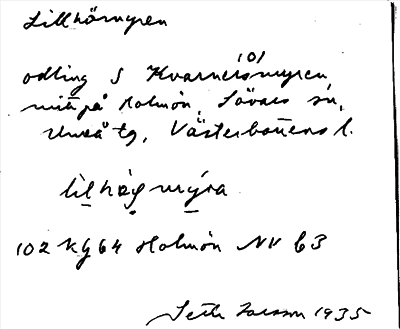 Lillhömyren
odling S Kvarnersmyren
(o)
mitt på Holmön, Sävars sn,
Umeå tg, Västerbottens l.
lìl hög mýra
102 Kg 64 Holmön NV 63
Seth Larsson 1935